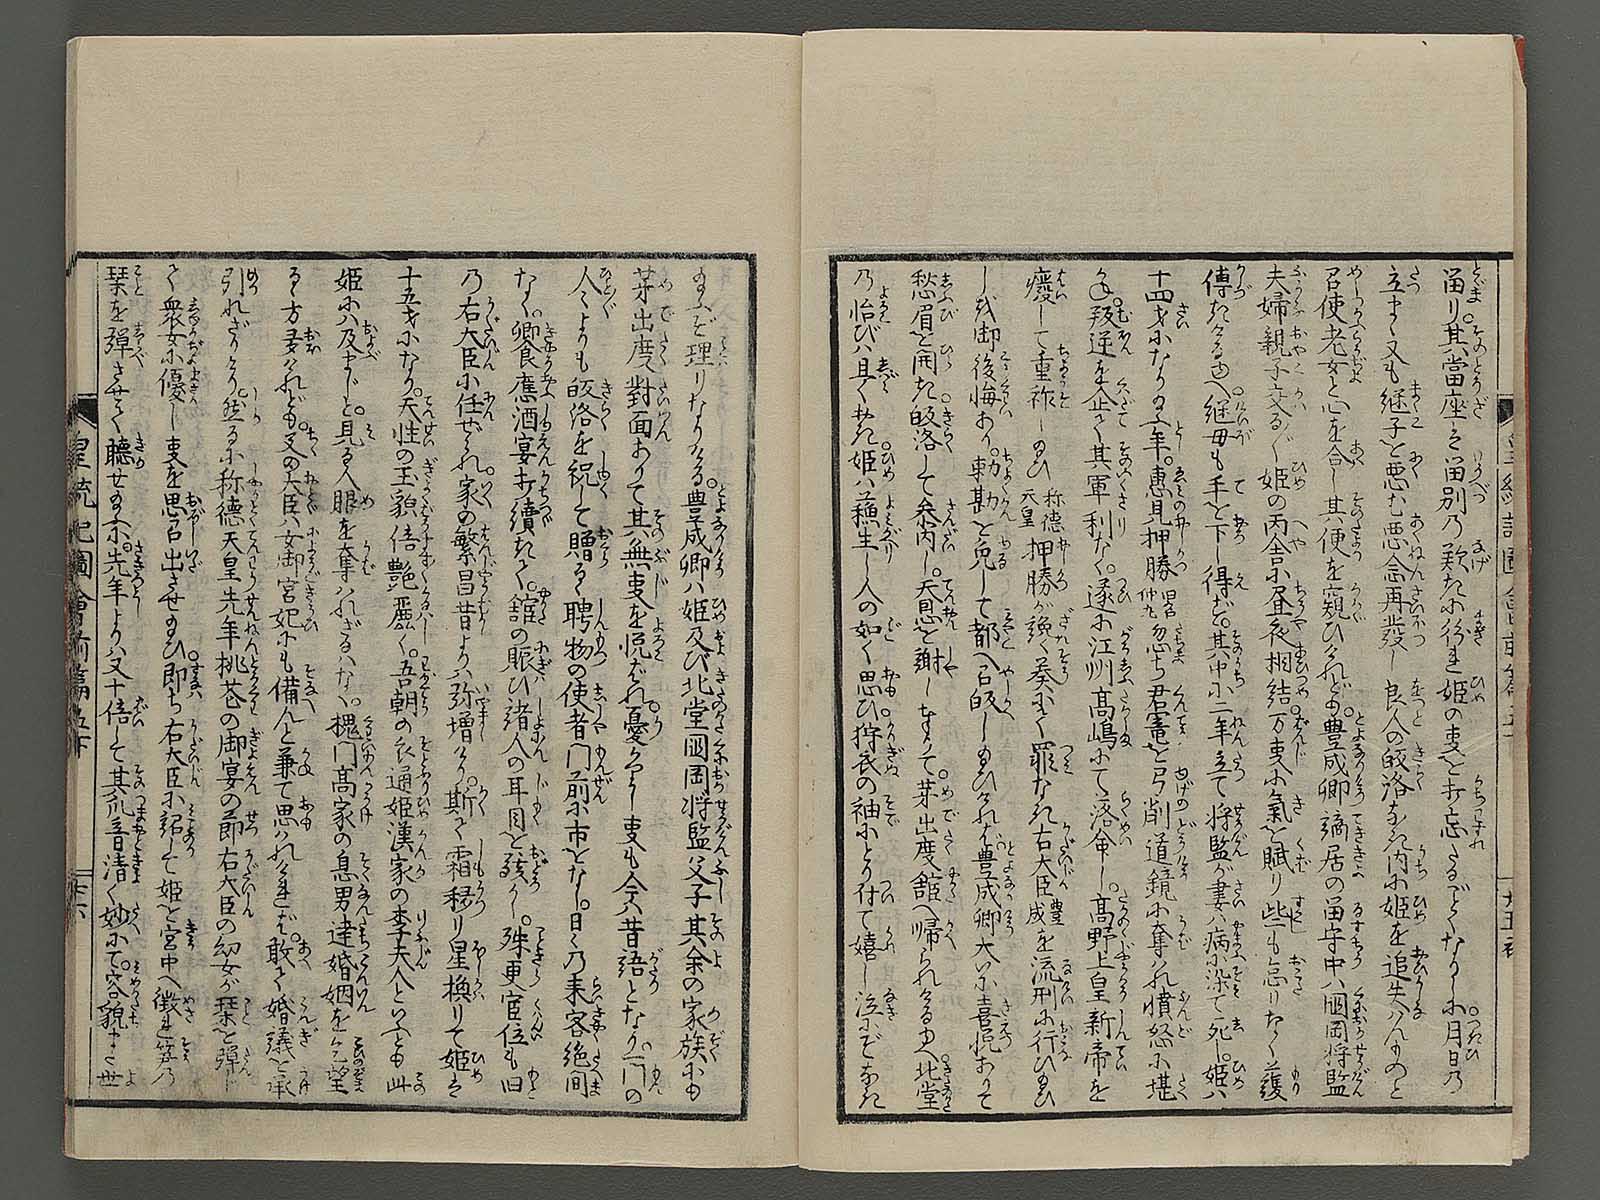 留り其當座こそ留別の歎きに移れ姫の事を打忘たるごとくなりしに月日の
立まく又も継子を悪む悪念再發し良人の皈洛なき内に姫を追失はんものと
召使老女と心を合し其便を窺ひけれども豊成卿謫居の留守中ハ國岡将監
夫婦親子交る〲姫の丙舎に昼夜相結万事に氣を賦り些も怠りなく護
傅きけるゆへ継母も手を下し得ず其中に二年立て将監が妻ハ病に染て死し姫ハ
十四才になりける年惠見押勝旧名仲丸忽ち君寵を弓削道鏡に奪はれ憤怒に堪
かね叛逆を企て其軍利なく遂に江州高嶋にて落命し高野上皇新帝を
癈して重祚し給ひ称徳天皇押勝が讒奏にて罪なき右大臣豊成を流刑に行ひ給ひ
しを御後悔あり勅勘を免して都へ召皈し給ひけれバ豊成卿大に喜悦ありて
愁眉を開き皈洛して参内し天恩を謝し奉りて芽出度舘へ帰られけるゆへ北堂
の怡びハ且く措き姫ハ蘇生し人の如く思ひ狩衣の袖にとり付て嬉し泣になき
給ふぞ理りなりける豊成卿ハ姫及び北堂國岡将監父子其余の家族にも
芽出度對面ありて其無事を悦ばれ憂かりし事も今ハ昔語となり一門の
人々よりも皈洛を祝して贈る聘物の使者門前に市をなし日々の来客絶間
なく饗應酒宴打續きて舘の賑ひ諸人の耳目を驚かし殊更官位も旧
の右大臣に任ぜられ家の繁昌昔よりハ弥増けり斯て霜移り星換りて姫ハ
十五才になり天性の玉貌倍艶麗く吾朝の衣通姫漢家の李夫人といふとも此
姫にハ及まじと見る人眼を奪はれざるハなく槐門高家の息男達婚姻を乞望
る方多けれども父の大臣ハ女御宮妃にも備んと兼て思はれけれバ敢て婚議を承
引れざりけり然るに称徳天皇先年桃花の御宴の節右大臣の幼女が琴を弾じ
て衆女に優し事を思召出させ給ひ即ち右大臣に詔して姫を宮中へ徴れ箏の
琴を弾させて聴せ給ふに先年よりハ又十倍して其爪音清く妙にて容貌まで世
皇統記圖會前篇五下